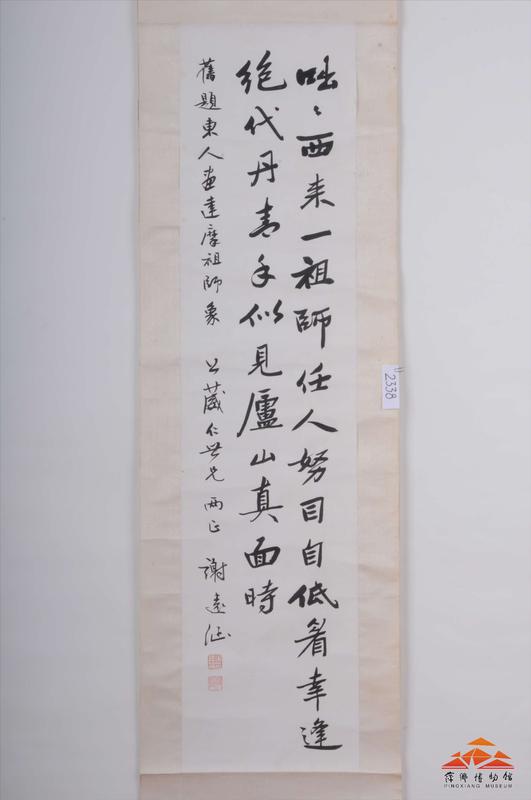 咄〻西来一祖師任人努目自低眉幸逢
絶代丹青手似見廬山真面時
舊題東人畫達摩祖師象 公葳仁世兄兩正 謝遠涵
2338
萍鄉博物館
PINGXIANG MUSEUM